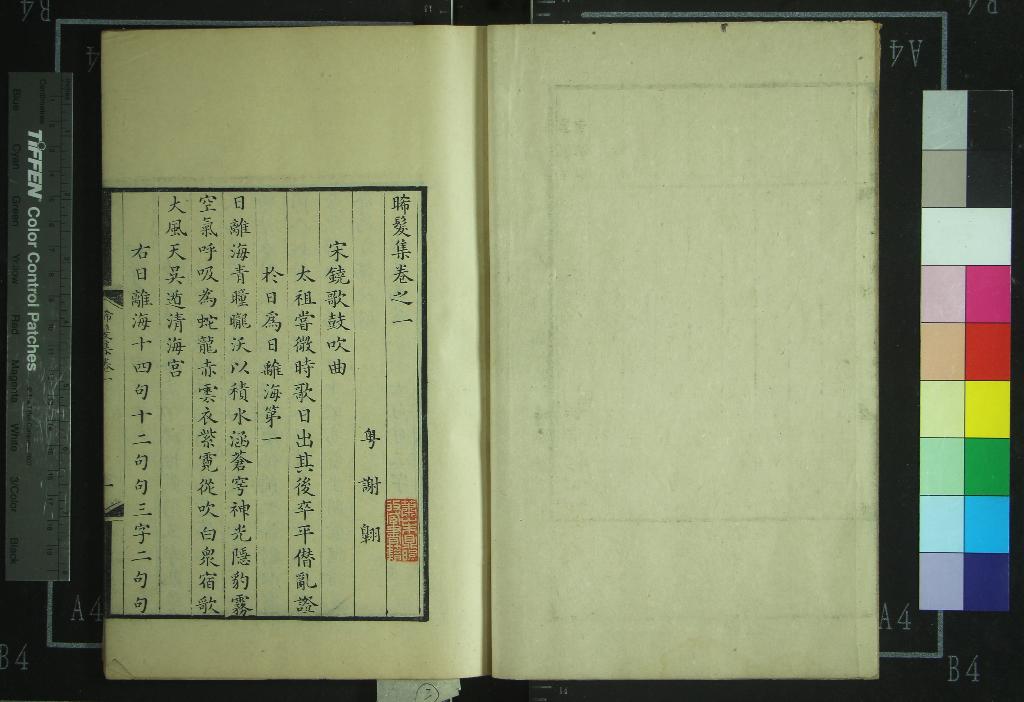 晞髮集卷之一
粤謝翺
宋鐃歌鼓吹曲
太祖嘗微時歌日出其後卒平僭亂證
於日爲日離海第一
日離海青曈曨沃以積水涵蒼穹神光隱豹霧
空氣呼吸為蛇龍赤雲衣紫霓從吹白衆宿歌
大風天吴遁清海宫
右日離海十四句十二句句三字二句句
TIFFEN Color Control Patches
Centimetres
Blue
Cyan
Green
Yellow
Red
Magenta
White
3/Color
Black
A4
A4
A4
A4
B4
B4
B4
B4
3